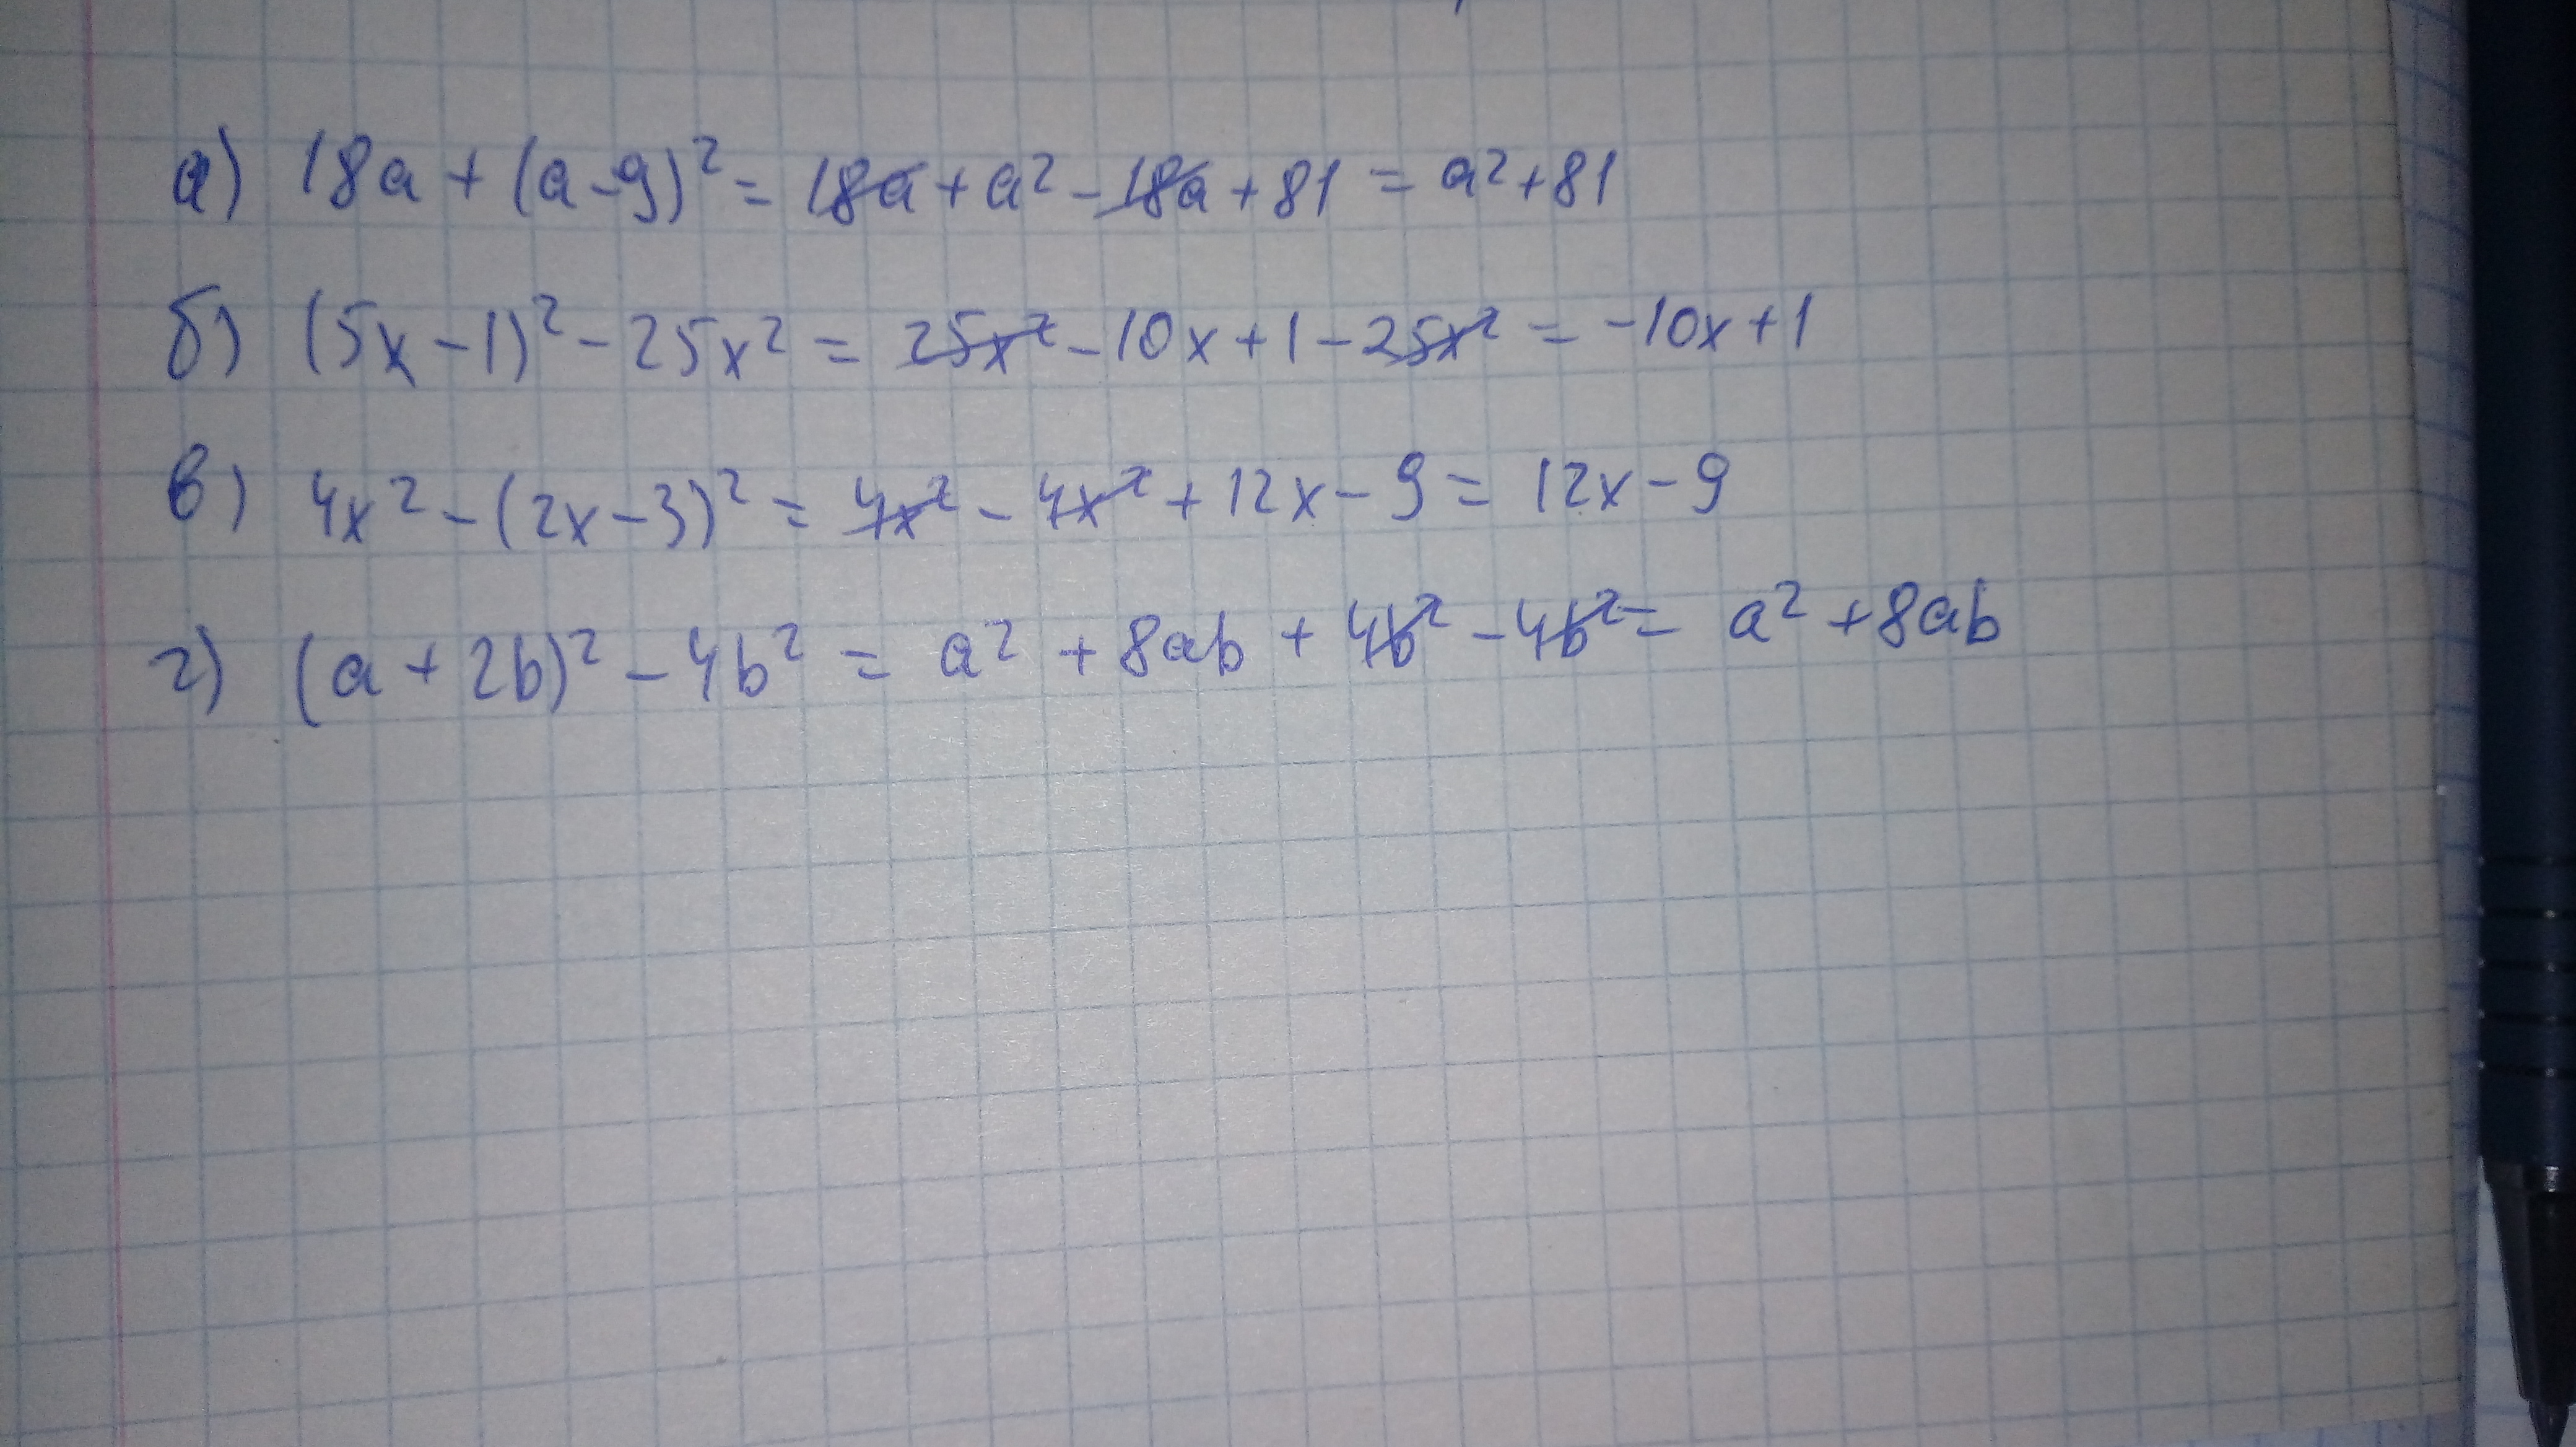 а) 18a + (a - 9)² = 18a + a² - 18a + 81 = a² + 81
б) (5x - 1)² - 25x² = 25x² - 10x + 1 - 25x² = -10x + 1
в) 4x² - (2x - 3)² = 4x² - 4x² + 12x - 9 = 12x - 9
г) (a + 2b)² - 4b² = a² + 8ab + 4b² - 4b² = a² + 8ab